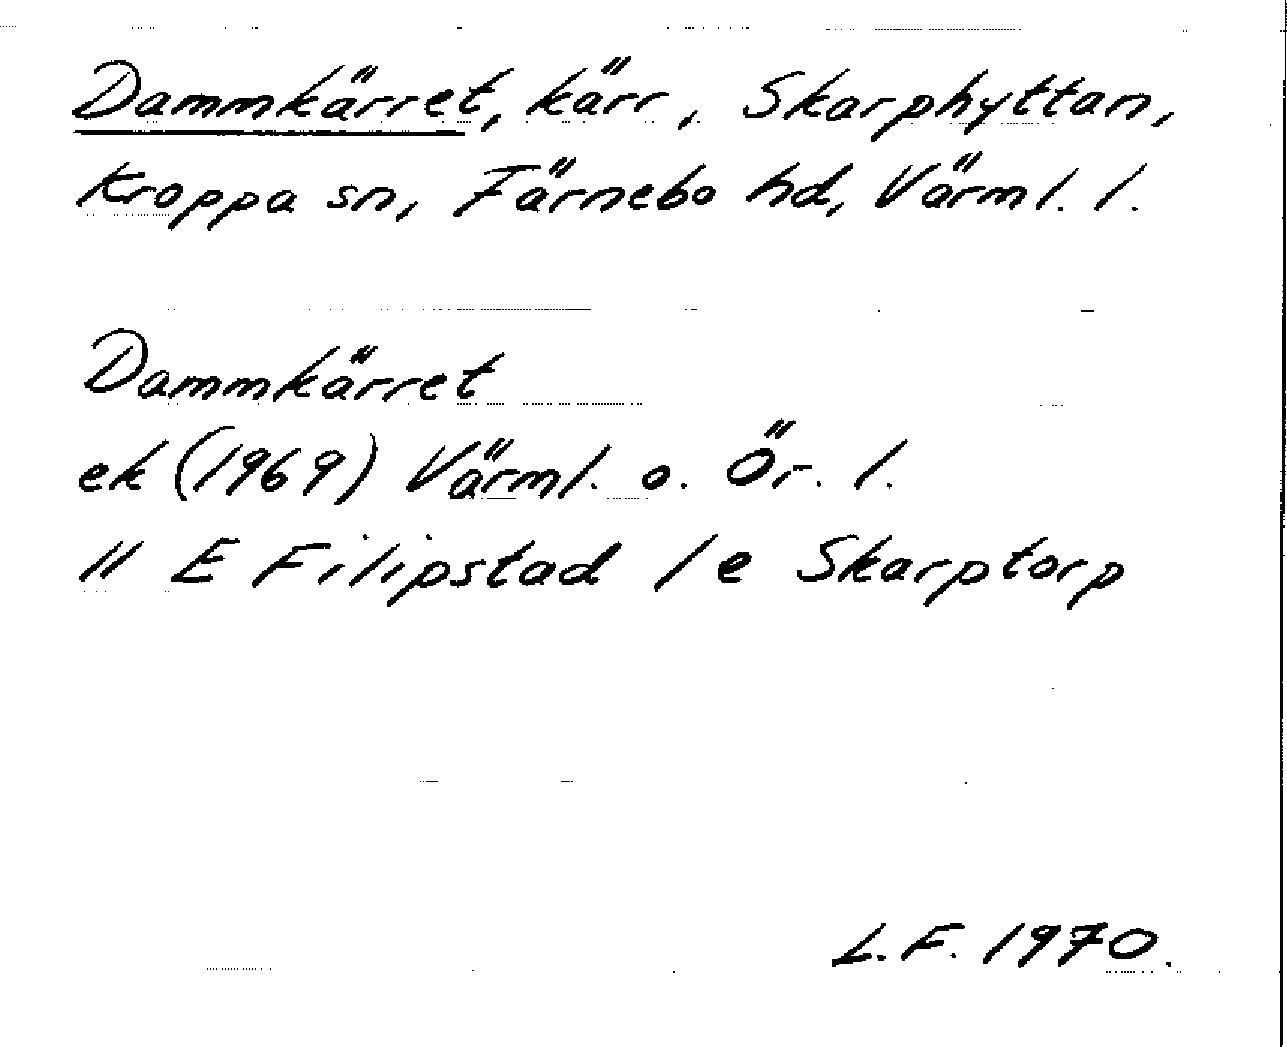 Dammkärret, kärr, Skarphyttan,
Kroppa sn, Färnebo hd, Värml. l.
Dammkärret
ek (1969) Värml. o. Ör. l.
11 E Filipstad 1 e Skarptorp
L.F. 1970.